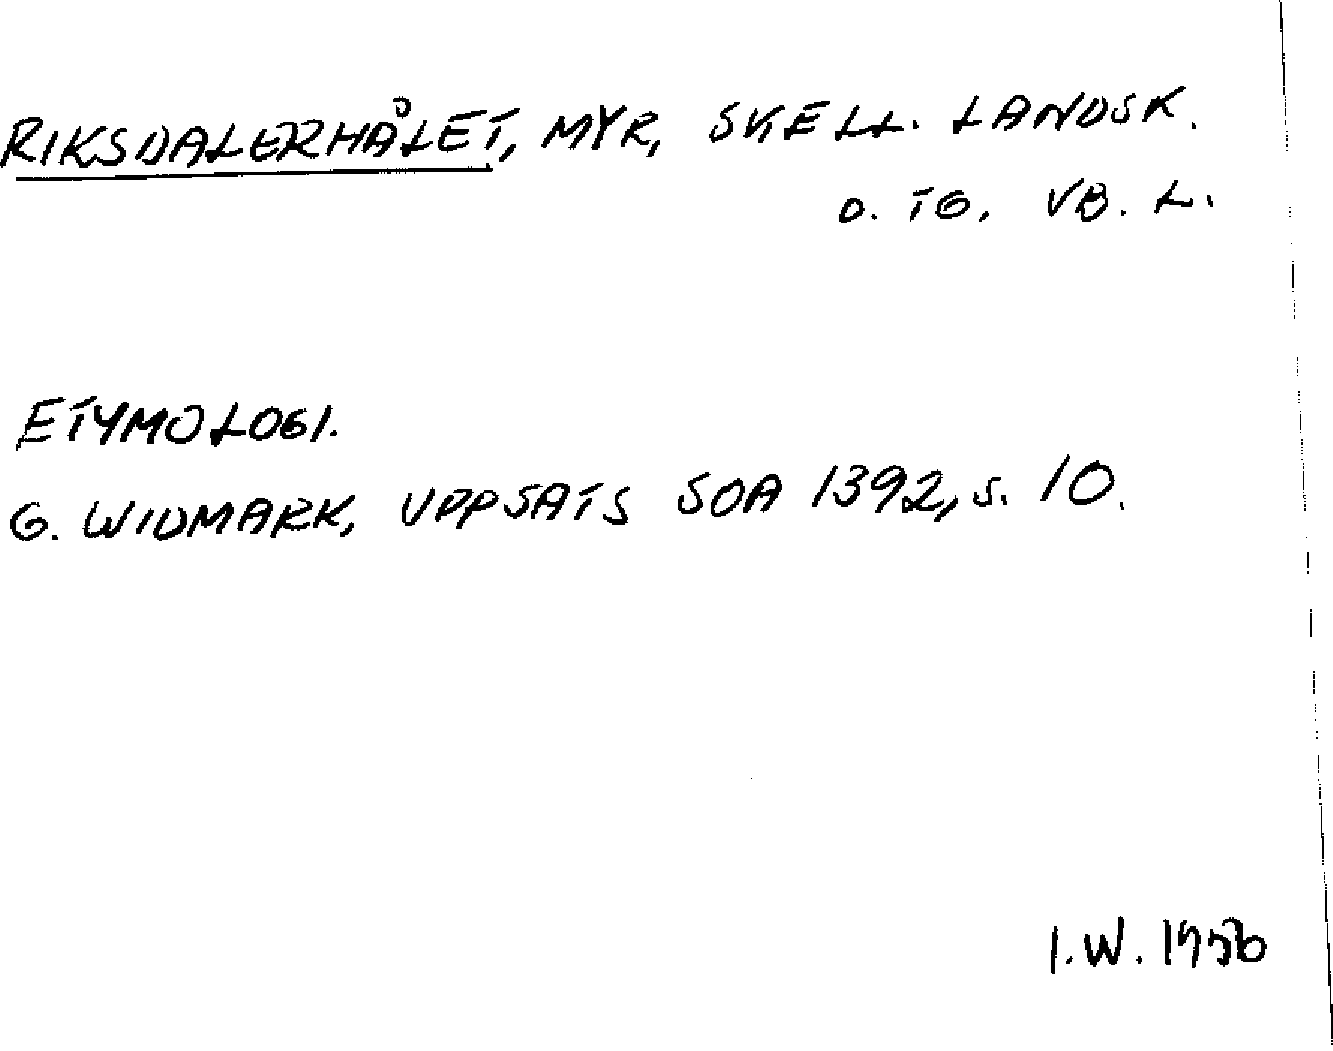 RIKSDALERHÅLET, MYR, SKELL. LANDSK.
O. TG, VB. L.
ETYMOLOGI.
G. WIDMARK, UPPSATS SOA 1392, S. 10.
I.W. 1956